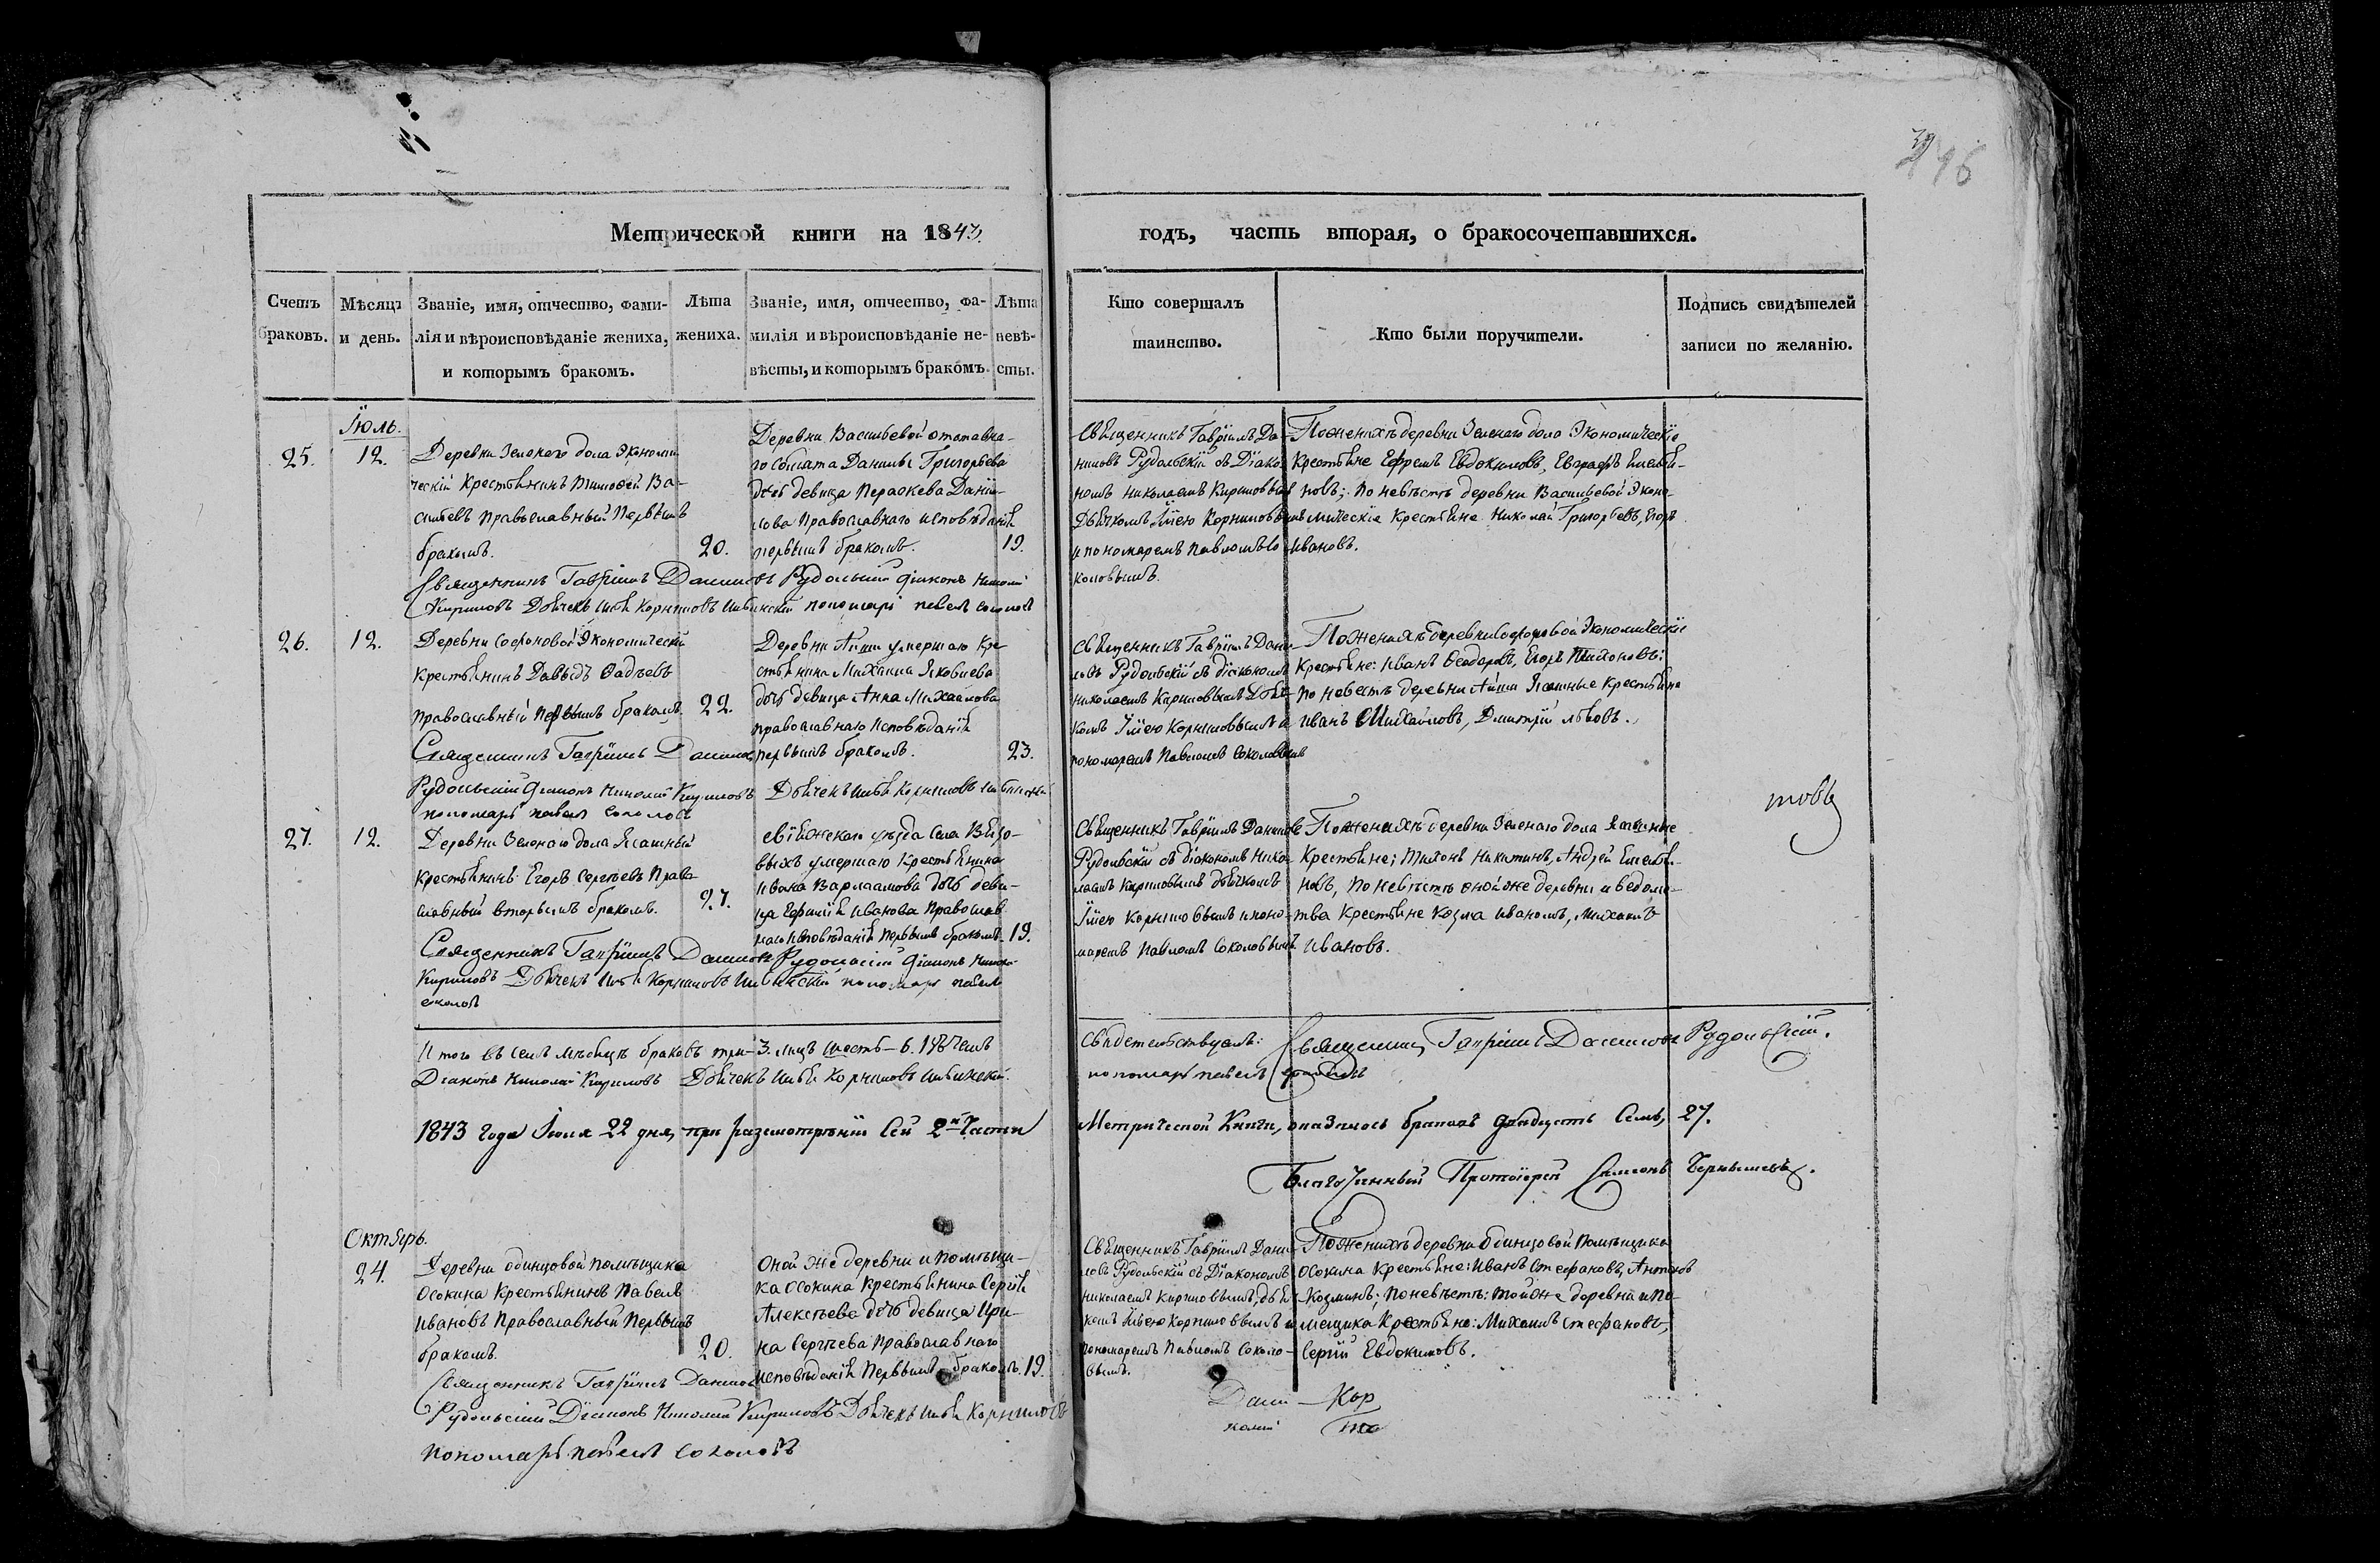 246
Метрической книги на 1843.
годъ, часть вторая, о бракосочетавшихся.
Счетъ браковъ.
Мѣсяцъ и день.
Званіе, имя, отчество, фами-
лія и вѣроисповѣданіе жениха,
и которымъ бракомъ.
Лѣта жениха.
Званіе, имя, отчество, фа-
милія и вѣроисповѣданіе не-
вѣсты, и которымъ бракомъ.
Лѣта невѣ-
сты.
Кто совершалъ
таинство.
Кто были поручители.
Подпись свидѣтелей
записи по желанію.
Іюль.
25.
12.
Деревни Зеленаго дола Экономи
ческій Крестьянинъ Тимоѳей Ва-
сильевъ Православный Первымъ
бракомъ.
20.
Деревни Васильевой отставна-
го Солдата Данилы Григорьева
дочь девица Параскева Дани-
лова Православнаго исповѣданія
первымъ бракомъ.
19.
Священникъ Гавріилъ Да-
ниловъ Рудольскій съ Діако-
номъ Николаемъ Кириловымъ
Дьячкомъ Іліею Корниловымъ
и пономаремъ Павломъ Со
коловымъ.
По женихѣ деревни Зеленаго дола Экономическіе
Крестьяне Ефремъ Евдокимовъ, Евграфъ Емелья-
новъ; По невѣстѣ деревни Васильевой Эконо-
мическіе Крестьяне Николай Григорьевъ, Егоръ
Ивановъ.
Священникъ Гавріилъ Даниловъ Рудольскій Діаконъ Николай
Кириловъ Дьячекъ Илья Корниловъ пономарь Павелъ Соколовъ
26.
12.
Деревни Софоновой Экономическій
Крестьянинъ Давыдъ Фадѣевъ
Православный Первымъ бракомъ.
22.
Деревни Айши умершаго Кре-
стьянина Михаила Яковлева
дочь девица Анна Михайлова
православнаго Исповѣданія
первымъ бракомъ.
23.
Священникъ Гавріилъ Дани-
ловъ Рудольскій съ діакономъ
Николаемъ Кириловымъ Дьяч-
комъ Іліею Корниловымъ и
пономаремъ Павломъ Соколовымъ
По женихѣ деревни Софоновой Экономическіе
Крестьяне: Иванъ Ѳеодоровъ, Егоръ Тихоновъ:
По невестѣ деревни Айши Ясашные Крестьяне
Иванъ Михайловъ, Дмитрій Львовъ.
Священникъ Гавріилъ Даниловъ
Рудольскій Діаконъ Николай Кириловъ Дьячекъ Илья Корниловъ
пономарь Павелъ Соколовъ
27.
12.
Деревни Зеленаго дола Ясашный
Крестьянинъ Егоръ Сергѣевъ Право
славный вторымъ бракомъ.
27.
Свіяжскаго уѣзда Села Вязо-
выхъ умершаго Крестьянина
Ивана Варлаамова дочь деви-
ца Ефимія Иванова Православ
наго Исповѣданія Первымъ бракомъ.
19.
Священникъ Гавріилъ Даниловъ
Рудольскій съ діакономъ Нико-
лаемъ Кириловымъ дьячкомъ
Іліею Корниловымъ и поно-
маремъ Павломъ Соколовымъ.
По женихѣ деревни Зеленаго дола Ясашные
Крестьяне; Тихонъ Никитинъ, Андрей Емелья-
новъ, По невѣстѣ оной же деревни и ведомс-
тва Крестьяне Козма Ивановъ, Михаилъ
Ивановъ.
товъ
Священникъ Гавріилъ Даниловъ Рудольскій Діаконъ Николай
Кириловъ Дьячекъ Илья Корниловъ пономарь Павелъ
Соколовъ
Итого въ семъ мѣсяцѣ браковъ три-3. лицъ шесть-6. человѣкъ
Діаконъ Николай Кириловъ Дьячекъ Илья Корниловъ
Свидетельствуемъ: Священникъ Гавріилъ Даниловъ Рудольскій.
пономарь Павелъ Соколовъ
1843 года Іюля 22 дня, при разсмотрѣніи Сей 2й Части
Метрической Книги, оказалось браковъ двадцать Семь, 27.
Благочинный Протоіерей Симеонъ Чернышевъ.
Октябрь.
24.
Деревни Одинцовой помѣщика
Осокина Крестьянинъ Павелъ
Ивановъ Православный Первымъ
бракомъ.
20.
Оной же деревни и помѣщи-
ка Осокина Крестьянина Сергія
Алексѣева дочь девица Ири-
на Сергѣева Православнаго
исповѣданія Первымъ бракомъ.
19.
Священникъ Гавріилъ Дани-
ловъ Рудольскій съ Діакономъ
Николаемъ Кириловымъ, дьяч-
комъ Іліею Корниловымъ и
пономаремъ Павломъ Соколо-
вымъ.
По женихѣ деревни Одинцовой Помѣщика
Осокина Крестьяне: Иванъ Стефановъ, Антонъ
Козминъ; По невѣстѣ: той же деревни и По-
мещика Крестьяне: Михаилъ Стефановъ,
Сергій Евдокимовъ.
Священникъ Гавріилъ Даниловъ
Рудольскій Діаконъ Николай Кириловъ Дьячекъ Илья Корниловъ
пономарь Павелъ Соколовъ